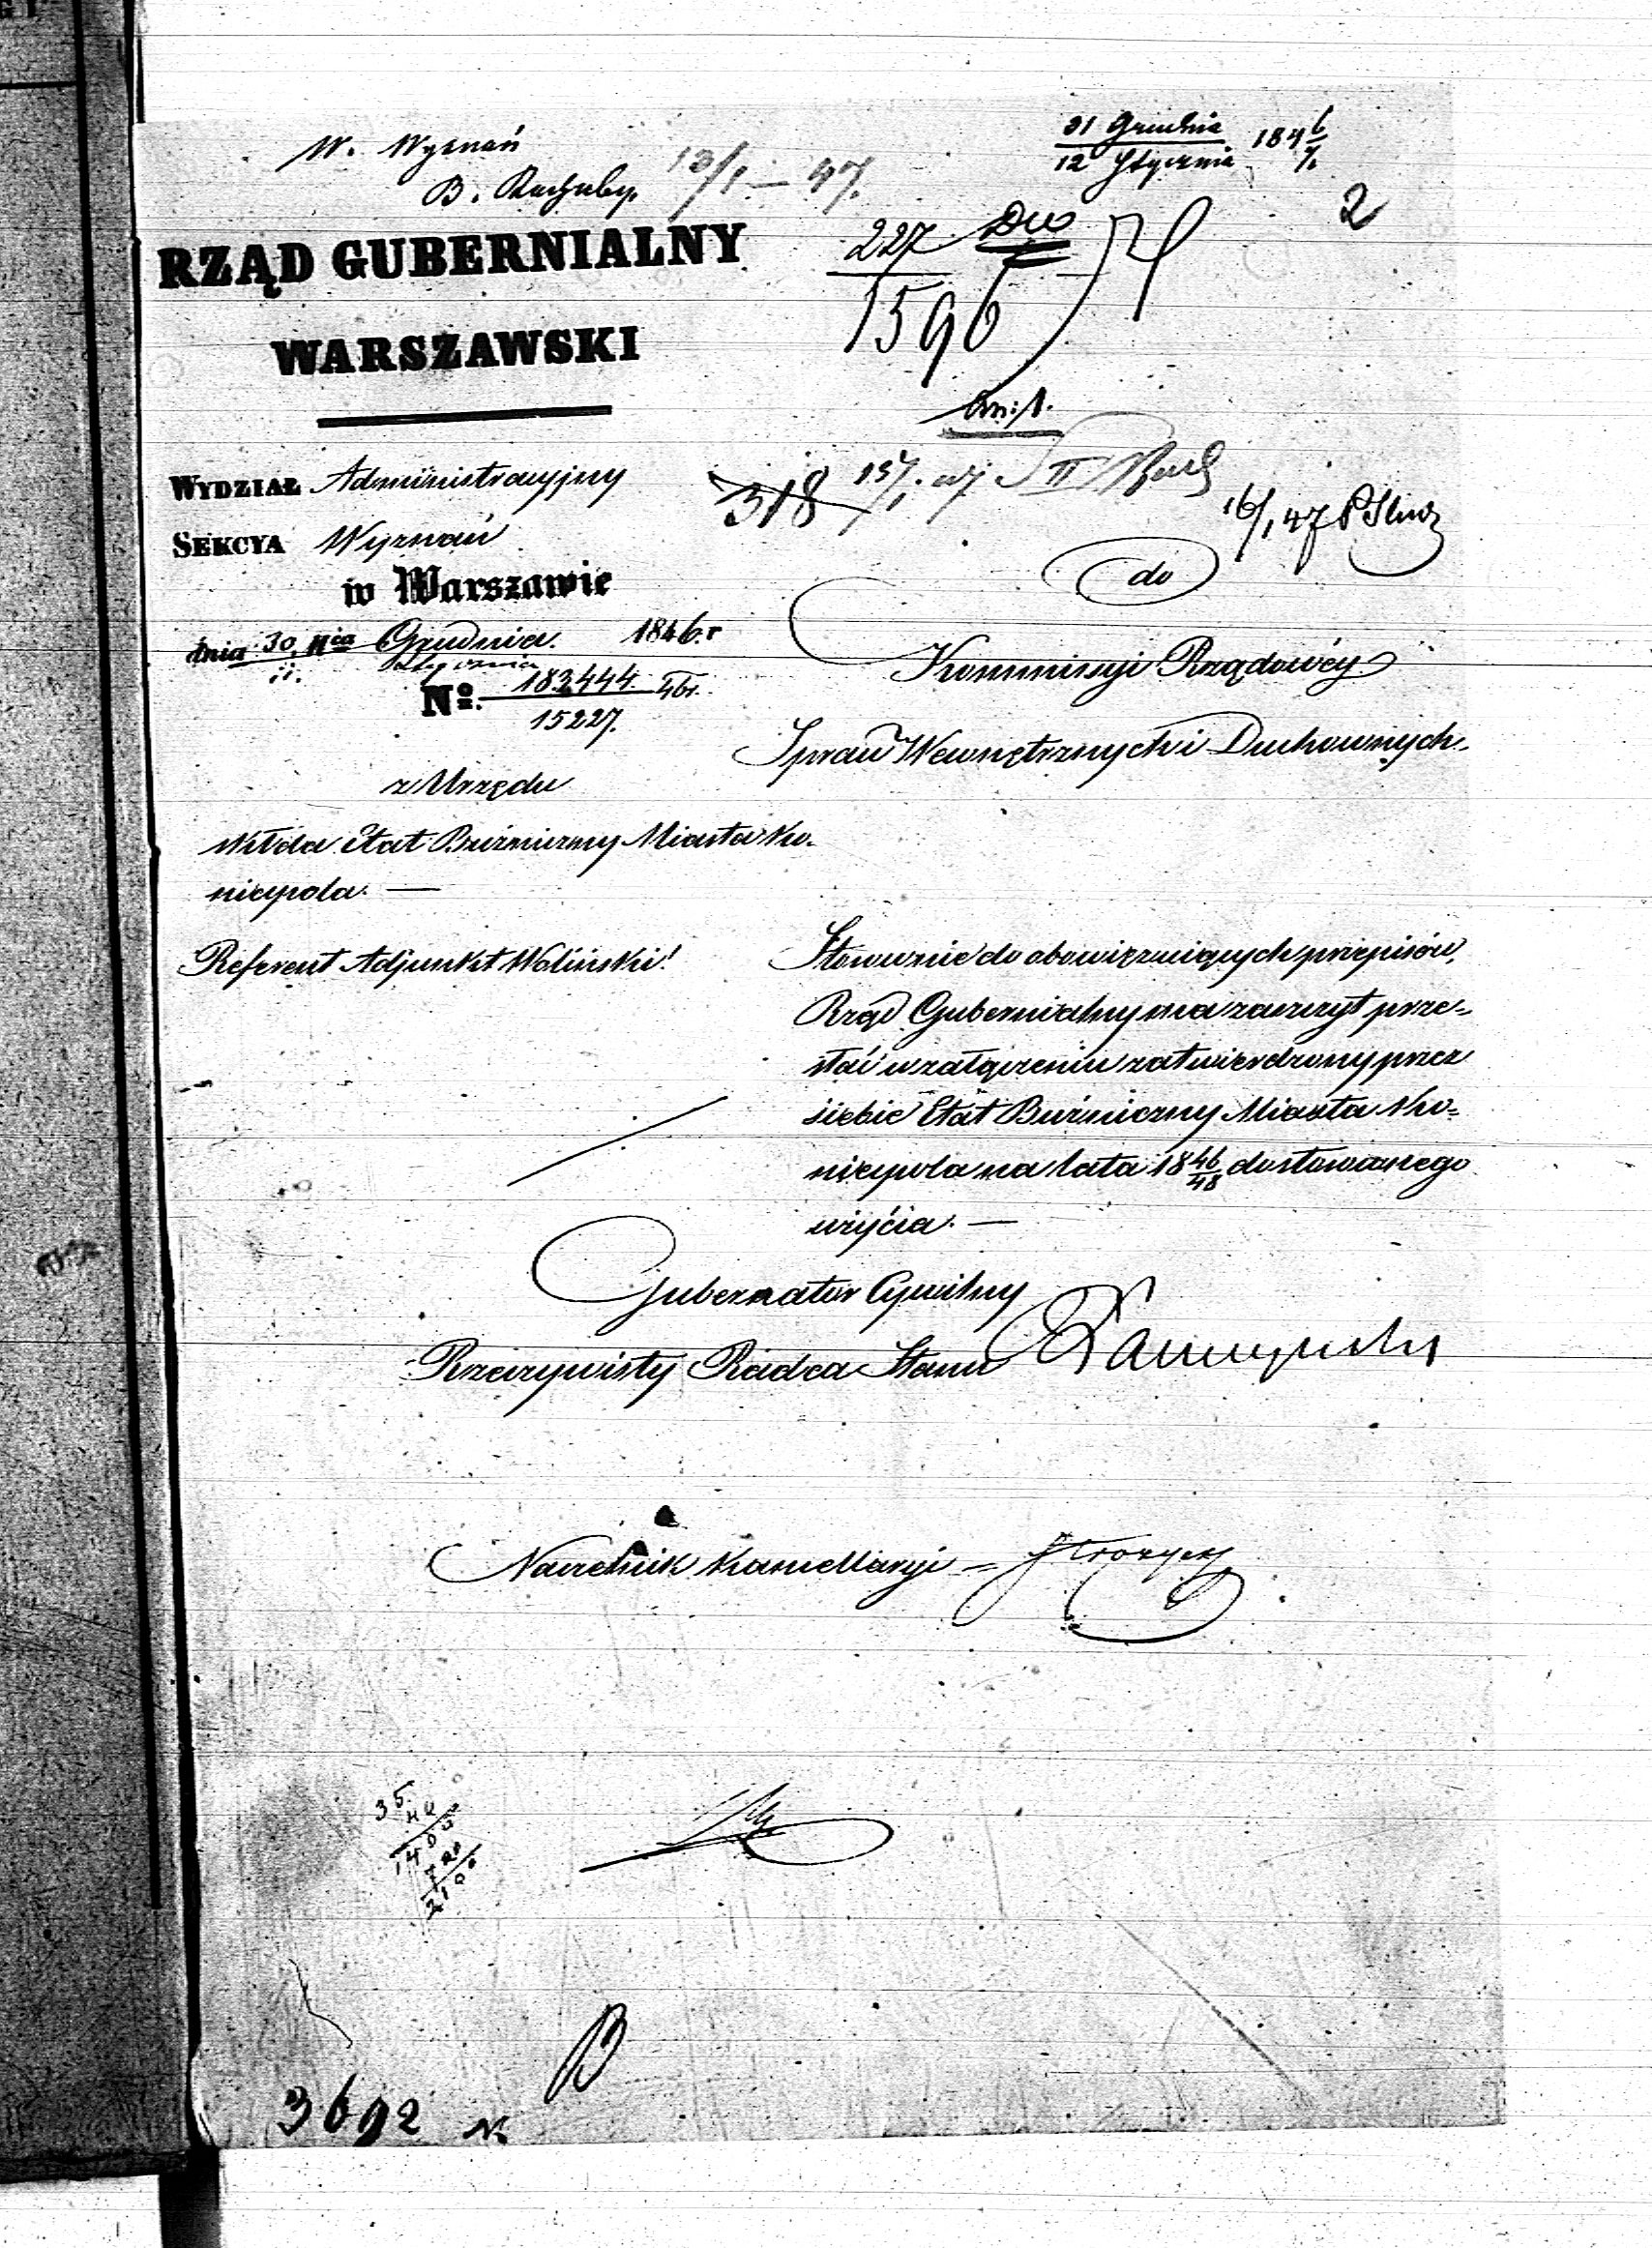 W. Wyznań
B. Rachuby. 13/1 – 47.
31 Grudnia
12 Stycznia 184 6/7
2
RZĄD GUBERNIALNY
WARSZAWSKI
227 Dw
1596
WYDZIAŁ Administracyjny
SEKCYA Wyznań
318
16/1 47
w Warszawie
dnia 30 Grudnia 1846.r
11. Stycznia
No. 183444 46r.
15227.
do
Kommissyi Rządowéy
Spraw Wewnętrznych i Duchownych.
z Urzędu
składa Etat Bóżniczny Miasta Ko-
niecpola. —
Referent Adjunkt Woliński!
Stosownie do obowiązuiących przepisów,
Rząd Gubernialny ma zaszczyt prze-
słać w załączeniu zatwierdzony przez
siebie Etat Bóżniczny Miasta Ko-
niecpola na lata 18 46/48 do stosownego
użycia. —
Gubernator Cywilny
Rzeczywisty Radca Stanu
Naczelnik Kancellaryi –
35.
40
1400
700
2100
B
3692